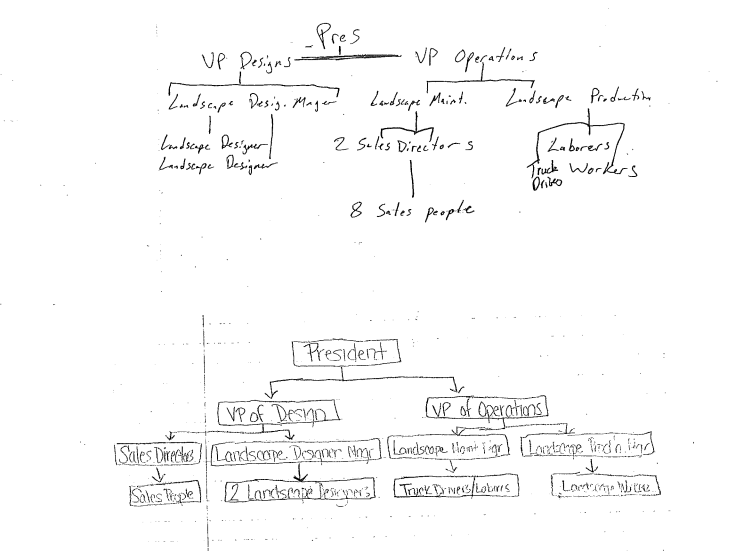 Pres
VP Designs VP Operations
Landscape Desig. Mnger Landscape Maint. Landscape Production
Landscape Designer 2 Sales Directors Laborers
Landscape Designer Truck Workers
8 Sales people
President
VP of Design VP of Operations
Sales Directors Landscape Designer Mngr Landscape Mgr Landscape Prod'n Mgr
Sales People 2 Landscape Designers Truck Drivers/Labores Landscape